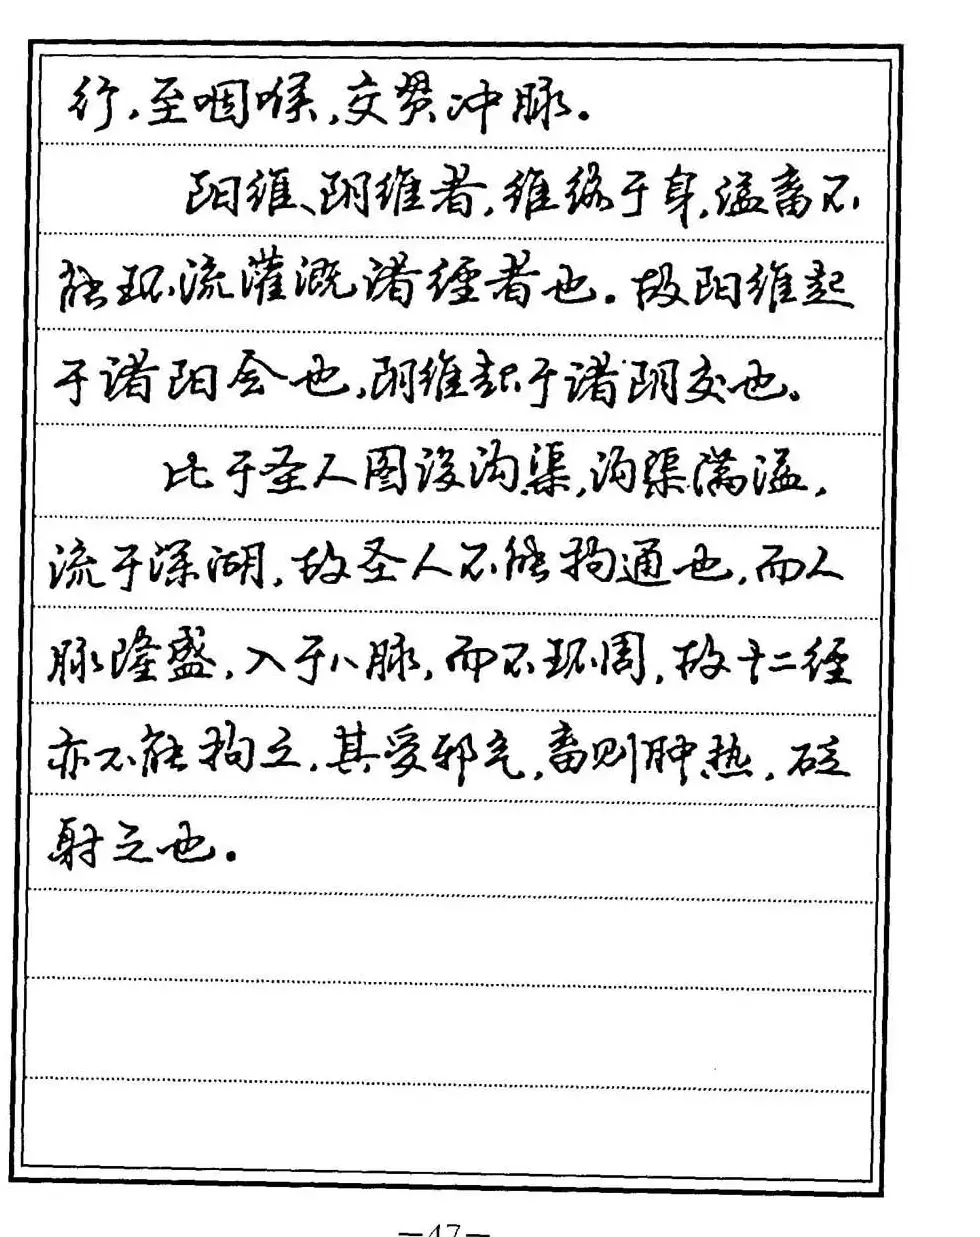 行,至咽喉,交贯冲脉。
阳维、阴维者,维络于身,溢畜不
能环流灌溉诸经者也。故阳维起
于诸阳会也,阴维起于诸阴交也。
比于圣人图设沟渠,沟渠满溢,
流于深湖,故圣人不能拘通也,而人
脉隆盛,入于八脉,而不环周,故十二经
亦不能拘之,其受邪气,畜则肿热,砭
射之也。
—47—